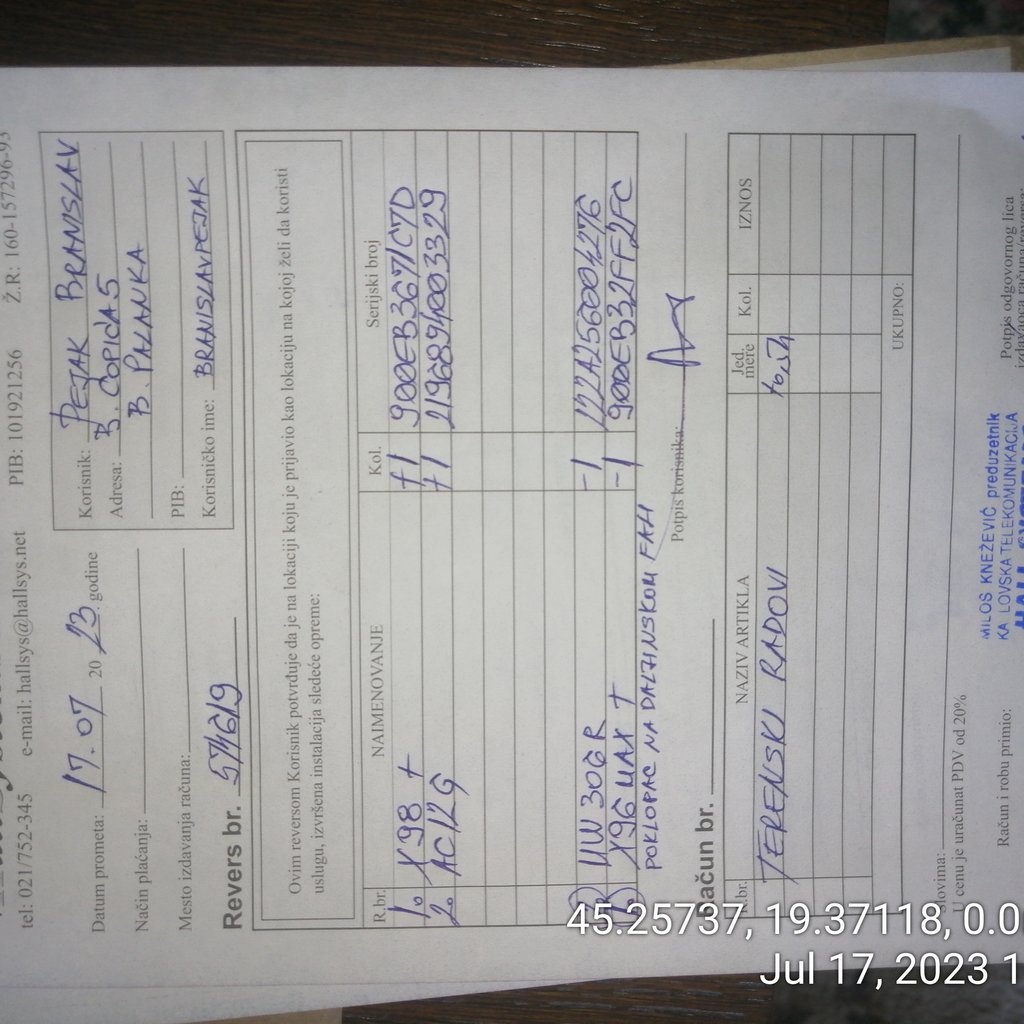 tel: 021/752-345 e-mail: hallsys@hallsys.net PIB: 101921256 Ž.R: 160-157296-93
Datum prometa: 17.07 2023. godine
Način plaćanja:
Mesto izdavanja računa:
Revers br. 574619
Korisnik: PEJAK BRANISLAV
Adresa: B. ĆOPIĆA 5
B. PALANKA
PIB:
Korisničko ime: BRANISLAVPEJAK
Ovim reversom Korisnik potvrđuje da je na lokaciji koju je prijavio kao lokaciju na kojoj želi da koristi
uslugu, izvršena instalacija sledeće opreme:
R.br. NAIMENOVANJE Kol. Serijski broj
1. X98 + +1 900EB367/C7D
2. AC12G +1 219689/1003329
MW 306R -1 122A256004276
X96 MAX + -1 900EB32FF2FC
POKLOPAC NA DALJINSKOM FALI
Potpis korisnika:
Račun br.
R.br. NAZIV ARTIKLA Jed. mere Kol. IZNOS
TERENSKI RADOVI
UKUPNO:
Slovima:
U cenu je uračunat PDV od 20%
Račun i robu primio:
Potpis odgovornog lica
MILOŠ KNEŽEVIĆ preduzetnik
KA LOVSKA TELEKOMUNIKACIJA
45.25737, 19.37118, 0.0
Jul 17, 2023 1